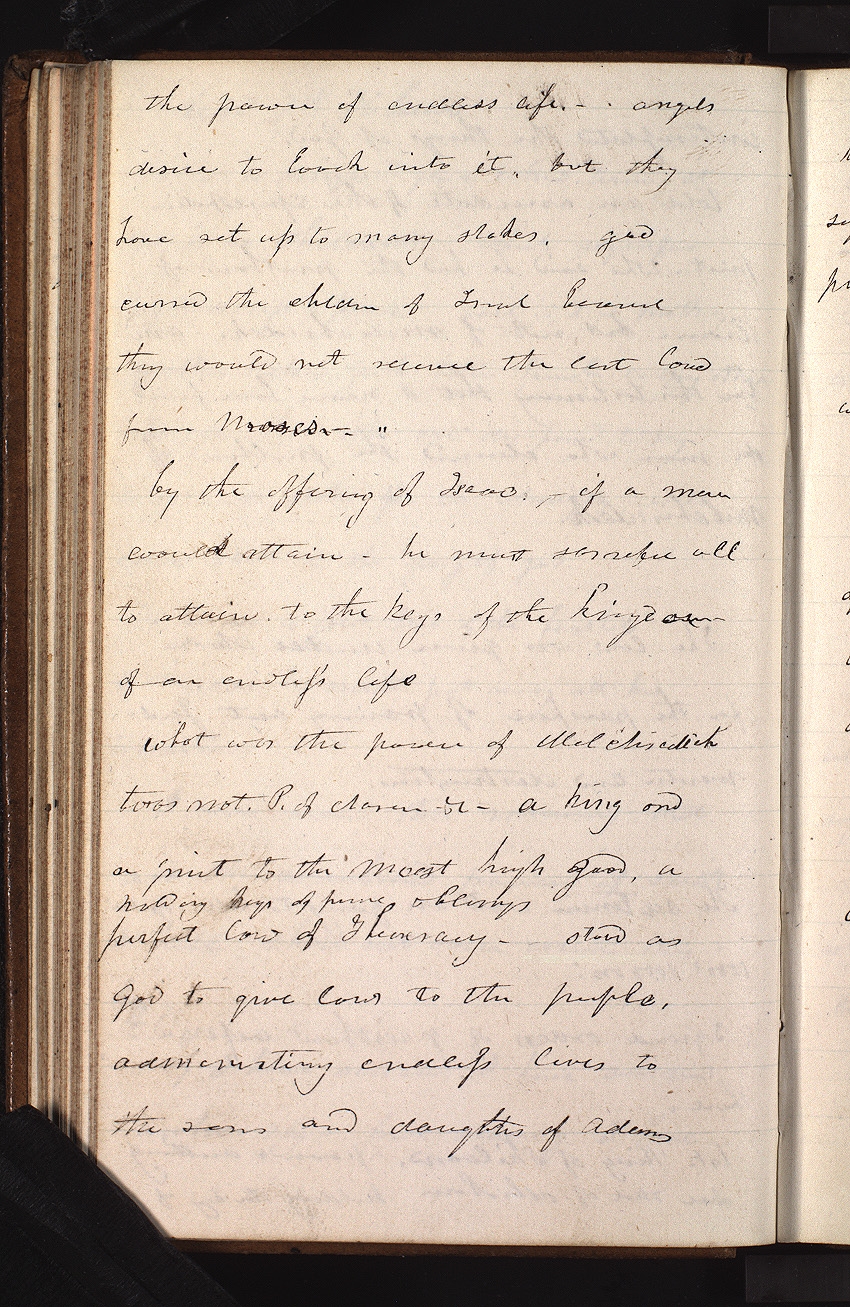 the power of endless life - . angels
desire to look into it, but they
have set up to many stakes. god
cursed the children of Israel because
they would not receive the last law
from Moses -. "
by the offering of Isaac. - if a man
would attain - he must sacrifice all
to attain. to the keys of the kingdom
of an endless life
what was the power of Melchisedick
twas not. P. of Aaron &c - a king and
a priest to the most high god, a
holding keys of power & blessings
perfect law of Theocracy - - stood as
God to give laws to the people.
administering endless lives to
the sons and daughters of Adam